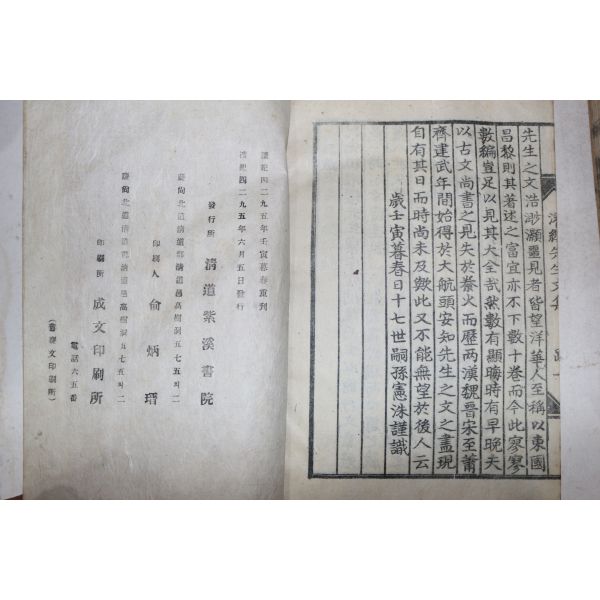 先生之文浩渺灝噩見者皆望洋華人至稱以東國
昌黎則其著述之富宜亦不下數十卷而今此寥寥
數編豈足以見其大全哉然數有顯晦時有早晚夫
以古文尚書之見失於秦火而歷兩漢魏晋宋至蕭
齊建武年間始得於大航頭安知先生之文之盡現
自有其日而時尚未及歟此又不能無望於後人云
歲壬寅暮春日十七世嗣孫憲洙謹識
檀紀四二九五年壬寅暮春重刊
檀紀四二九五年六月五日發行
發行所 淸道紫溪書院
慶尙北道淸道郡淸道邑高樹洞五七五의二
印刷人 兪炳瑨
慶尙北道淸道郡淸道邑高樹洞五七五의二
印刷所 成文印刷所
電話六五番
文印刷所)